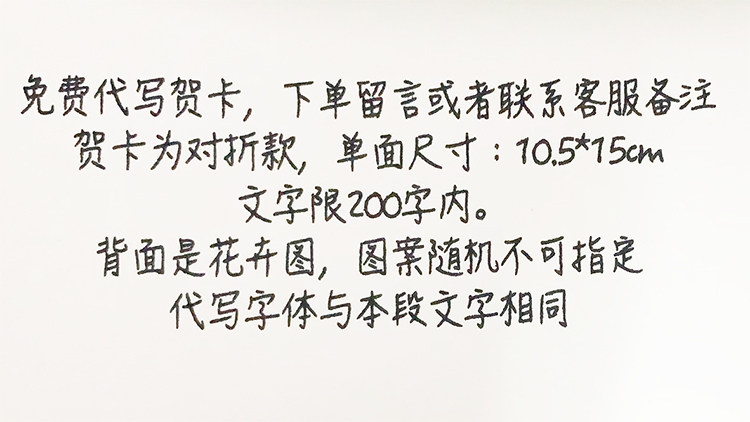 免费代写贺卡，下单留言或者联系客服备注
贺卡为对折款，单面尺寸：10.5*15cm
文字限200字内。
背面是花卉图，图案随机不可指定
代写字体与本段文字相同